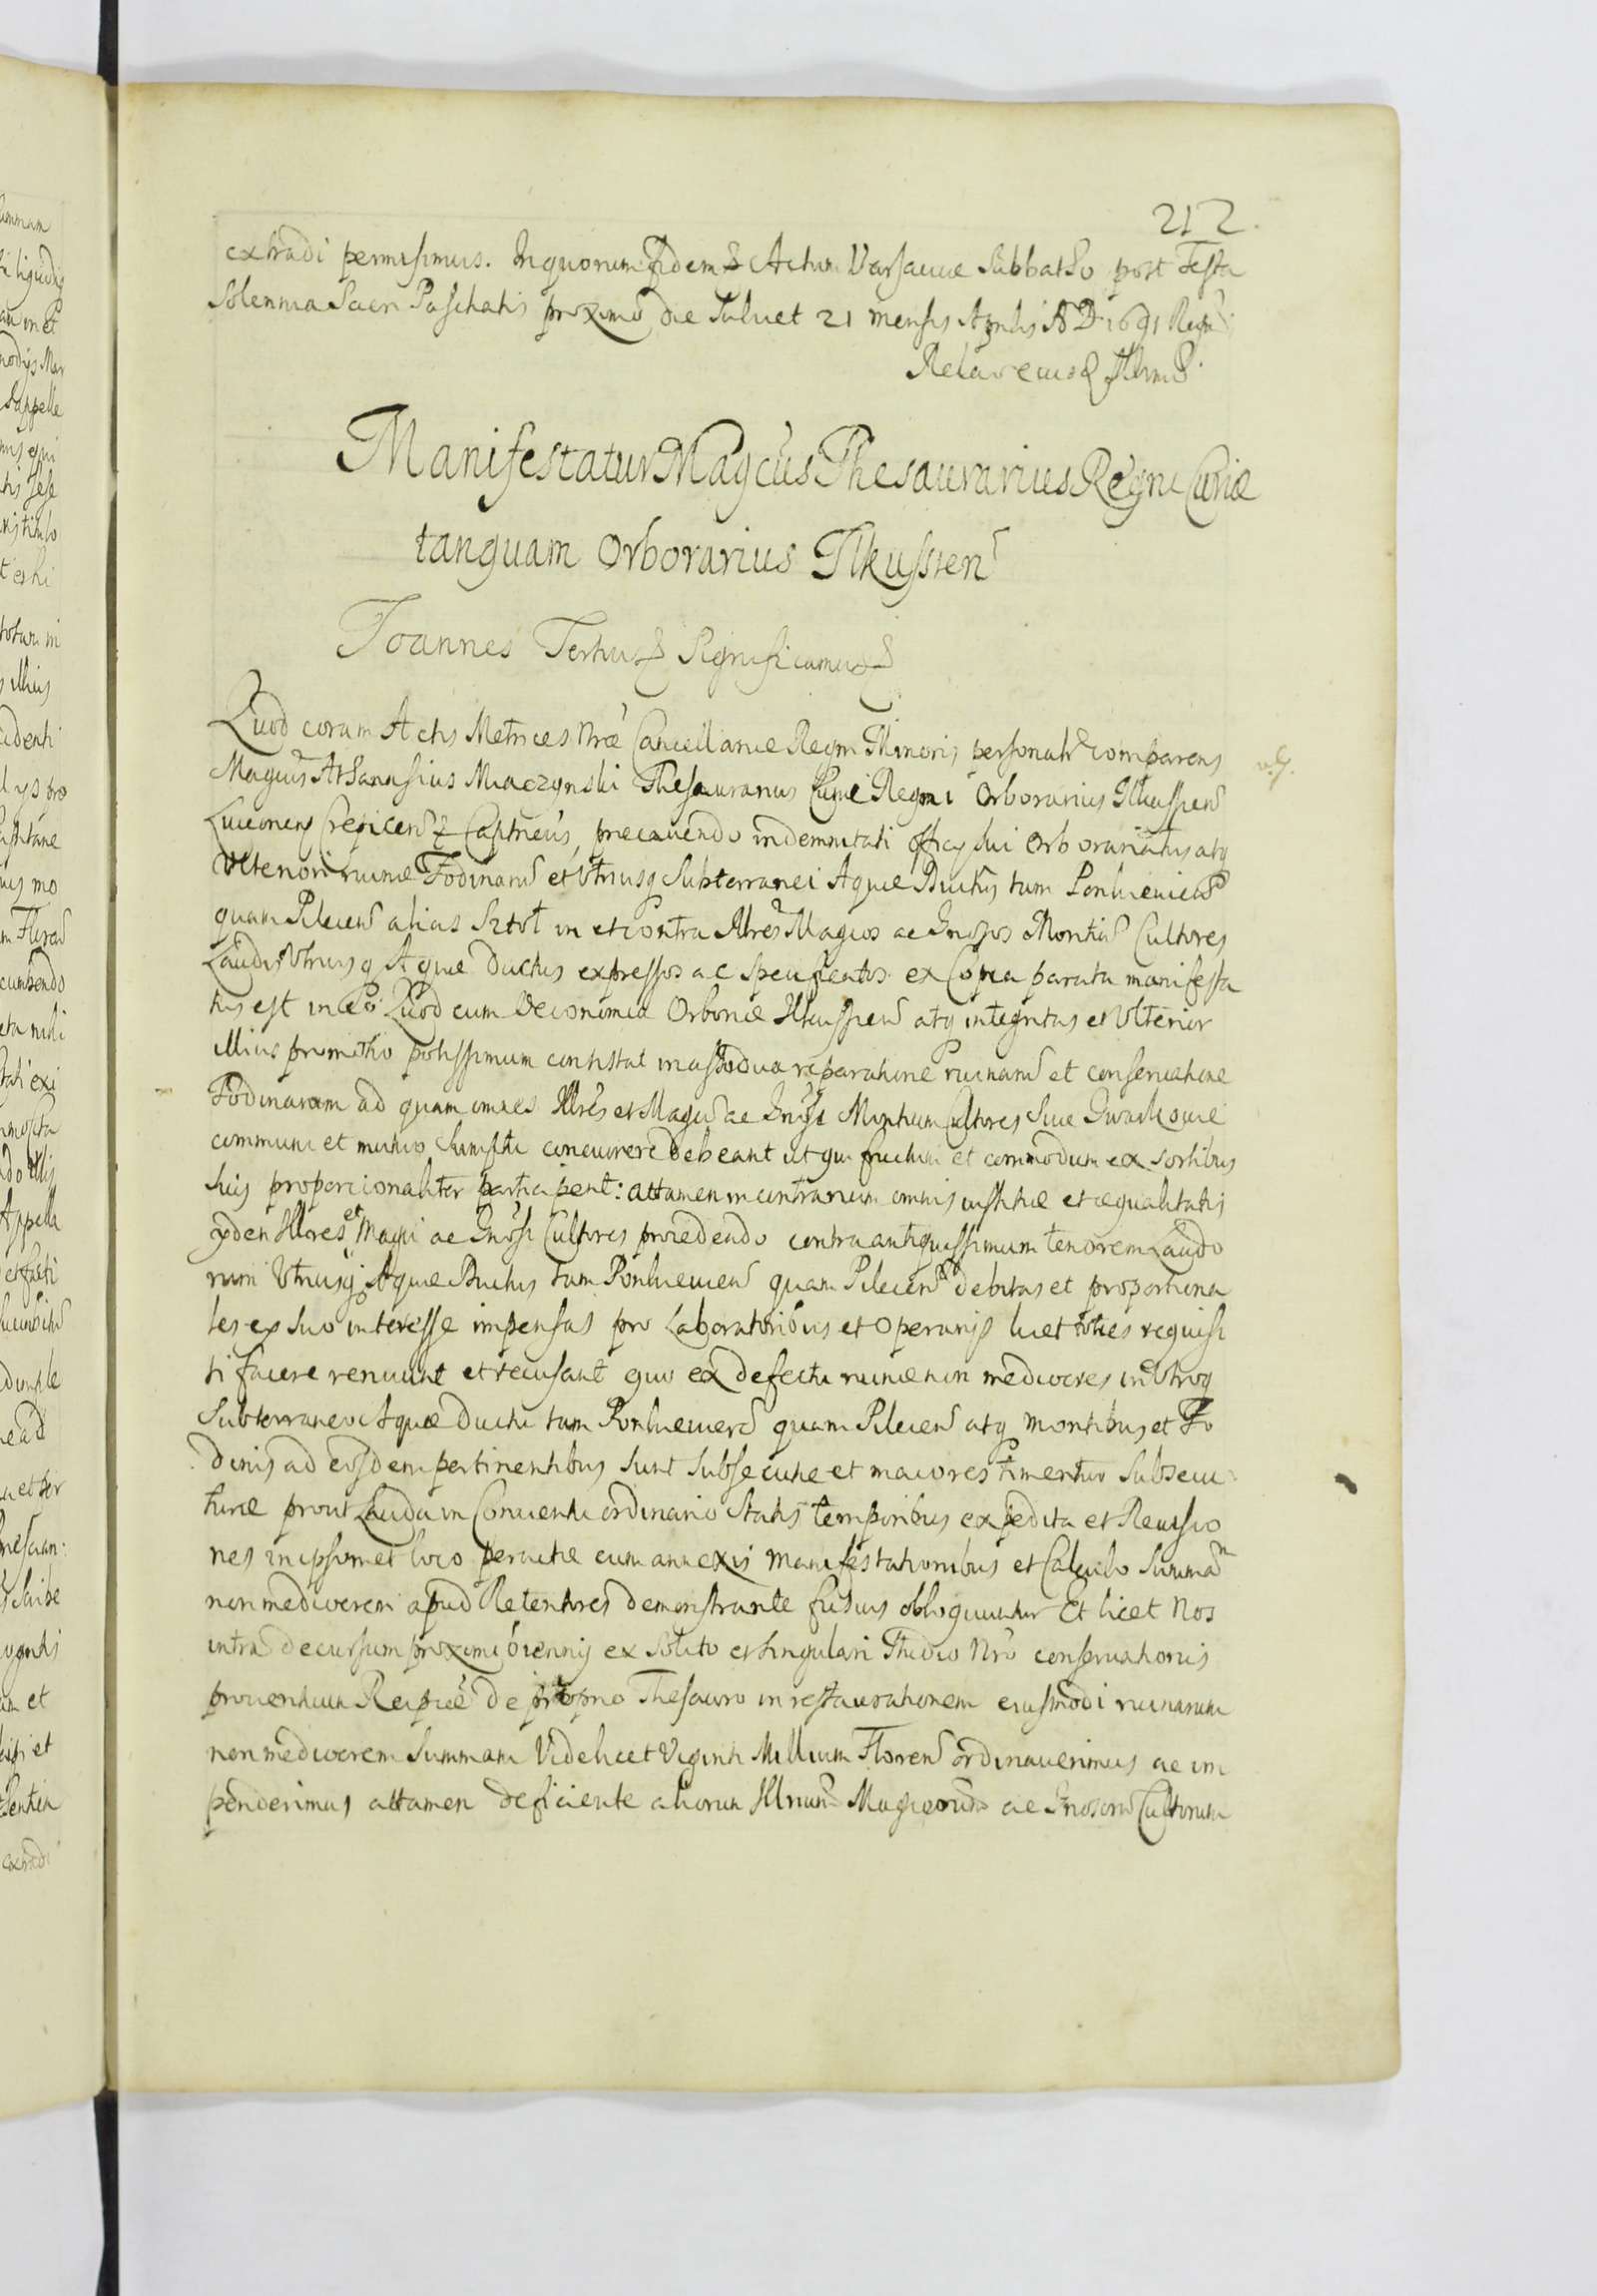 212.
extradi permisimus. In quorum fidem & Actum Varsauiae Sabbatho post Festa
Solennia Sacri Paschatis proximo die Scilicet 21 mensis Aprilis A D 1691 Regni
Relao eiusd Illrmi
Manifestatur Magcus Thesaurarius Regni Curiae
tanquam Orborarius Ilkussien
Joannes Tertius & Significamus &
Quod coram Actis Metrices Nrae Cancellariae Regni Minoris personalr comparens
Magcus Athanasius Miaczynski Thesaurarius Curiae Regni Orborarius Ilkussien
Luceoriens Crepicen & Captneus, praecauendo indemnitati officij sui Orborariatus atq
Vlteriori ruinae Fodinarum et Vtriusq Subterranei Aquae Ductus tum Ponikouicen
quam Pilecien alias Sztol in et contra Illres Magcos ac Gnosos Montium Cultores
Laudis Vtriusq Aquae ductus expressos ac specificatos ex Copia parata manifesta
tus est in eo Quod cum Oeconomia Orboriae Ilkussien atq integritas et Vlterior
illius promotio potissimum consistat in assidua reparatione ruinarum et conseruatione
Fodinarum ad quam omnes Illres et Magci ac Gnosi Montium Cultores Siue Gwarkowie
communi et mutuo Sumptu concurrere debeant ut qui fructum et commodum ex sortibus
suis proporcionaliter participent: attamen in contrarium omnis iustitiae et aequalitatis
ijdem Illres et Magci ac Gnosi Cultores procedendo contra antiquissimum tenorem Laudo
rum Vtriusq Aquae Ductus tum Ponikouien quam Pilecien debitas et proportiona
les ex suo interesse impensas pro Laboratoribus et Operarijs licet toties requisi
ti facere renuunt et recusant quo ex defectu ruinae non mediocres in Vtroq
Subterraneo Aquae Ductu tum Ponikouien quam Pilecien atq montibus et Fo
dinis ad eosdem pertinentibus sunt subsecutae et maiores timentur subsecu
turae prout Lauda in Conuentu ordinario statis temporibus expedita et Reuisio
nes in ipsomet loco peractae cum annexis manifestationibus et Calculo Summam
non mediocrem apud Retentores demonstrante fusius obloquuntur Et licet Nos
intra decursum proximi biennij ex solito et singulari Studio Nro conseruationis
prouentuum Reipcae de proprio Thesauro in restaurationem eiusmodi ruinarum
non mediocrem summam Videlicet Viginti Millium Floren ordinauerimus ac im
penderimus attamen deficiente aliorum Illrium Magcorum ac Gnosorum Cultorum